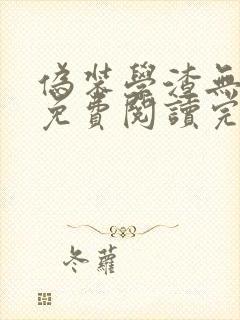 偽裝學渣無
免費閱讀完
冬蘿